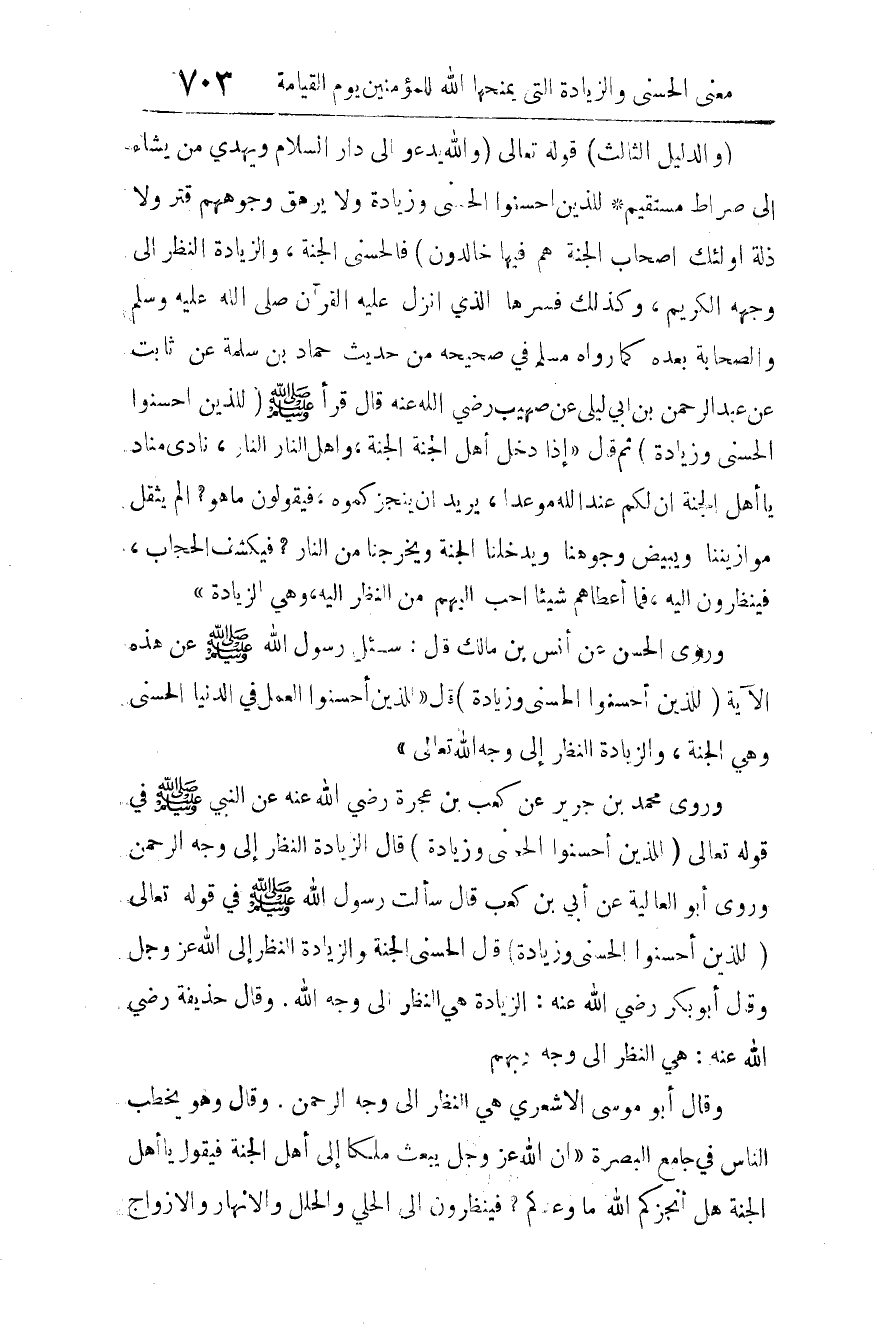 معنى الحسنى والزيادة التى يمنحها الله للمؤمنين يوم القيامة ٧٠٣
(والدليل الثالث) قوله تعالى (والله يدعو الى دار السلام ويهدي من يشاء
إلى صراط مستقيم * للذين احسنوا الحسنى وزيادة ولا يرهق وجوههم قتر ولا
ذلة اولئك اصحاب الجنة هم فيها خالدون) فالحسنى الجنة ، والزيادة النظر الى
وجهه الكريم ، وكذلك فسرها الذي انزل عليه القرآن صلى الله عليه وسلم
والصحابة بعده كما رواه مسلم في صحيحه من حديث حماد بن سلمة عن ثابت
عن عبدالرحمن بن ابي ليلى عن صهيب رضي الله عنه قال قرأ ﷺ ( للذين احسنوا
الحسنى وزيادة ) ثم قال «إذا دخل أهل الجنة الجنة ، واهل النار النار ، نادى مناد
يا أهل الجنة ان لكم عند الله موعدا ، يريد ان ينجزكموه ، فيقولون ماهو ? الم يثقل
موازيننا ويبيض وجوهنا ويدخلنا الجنة ويخرجنا من النار ? فيكشف الحجاب ،
فينظرون اليه ، فما أعطاهم شيئا احب اليهم من النظر اليه ، وهي الزيادة »
وروى الحسن عن أنس بن مالك قال : سئل رسول الله ﷺ عن هذه
الآية ( للذين أحسنوا الحسنى وزيادة ) قال « للذين أحسنوا العمل في الدنيا الحسنى
وهي الجنة ، والزيادة النظر إلى وجه الله تعالى »
وروى محمد بن جرير عن كعب بن عجرة رضي الله عنه عن النبي ﷺ في
قوله تعالى ( للذين أحسنوا الحسنى وزيادة ) قال الزيادة النظر إلى وجه الرحمن
وروى أبو العالية عن أبي بن كعب قال سألت رسول الله ﷺ في قوله تعالى
( للذين أحسنوا الحسنى وزيادة) قال الحسنى الجنة والزيادة النظر إلى الله عز وجل
وقال أبو بكر رضي الله عنه : الزيادة هي النظر الى وجه الله . وقال حذيفة رضي
الله عنه : هي النظر الى وجه ربهم
وقال أبو موسى الاشعري هي النظر الى وجه الرحمن . وقال وهو يخطب
الناس في جامع البصرة «ان الله عز وجل يبعث ملكا إلى أهل الجنة فيقول يا أهل
الجنة هل أنجزكم الله ما وعدكم ? فينظرون الى الحلي والحلل والانهار والازواج